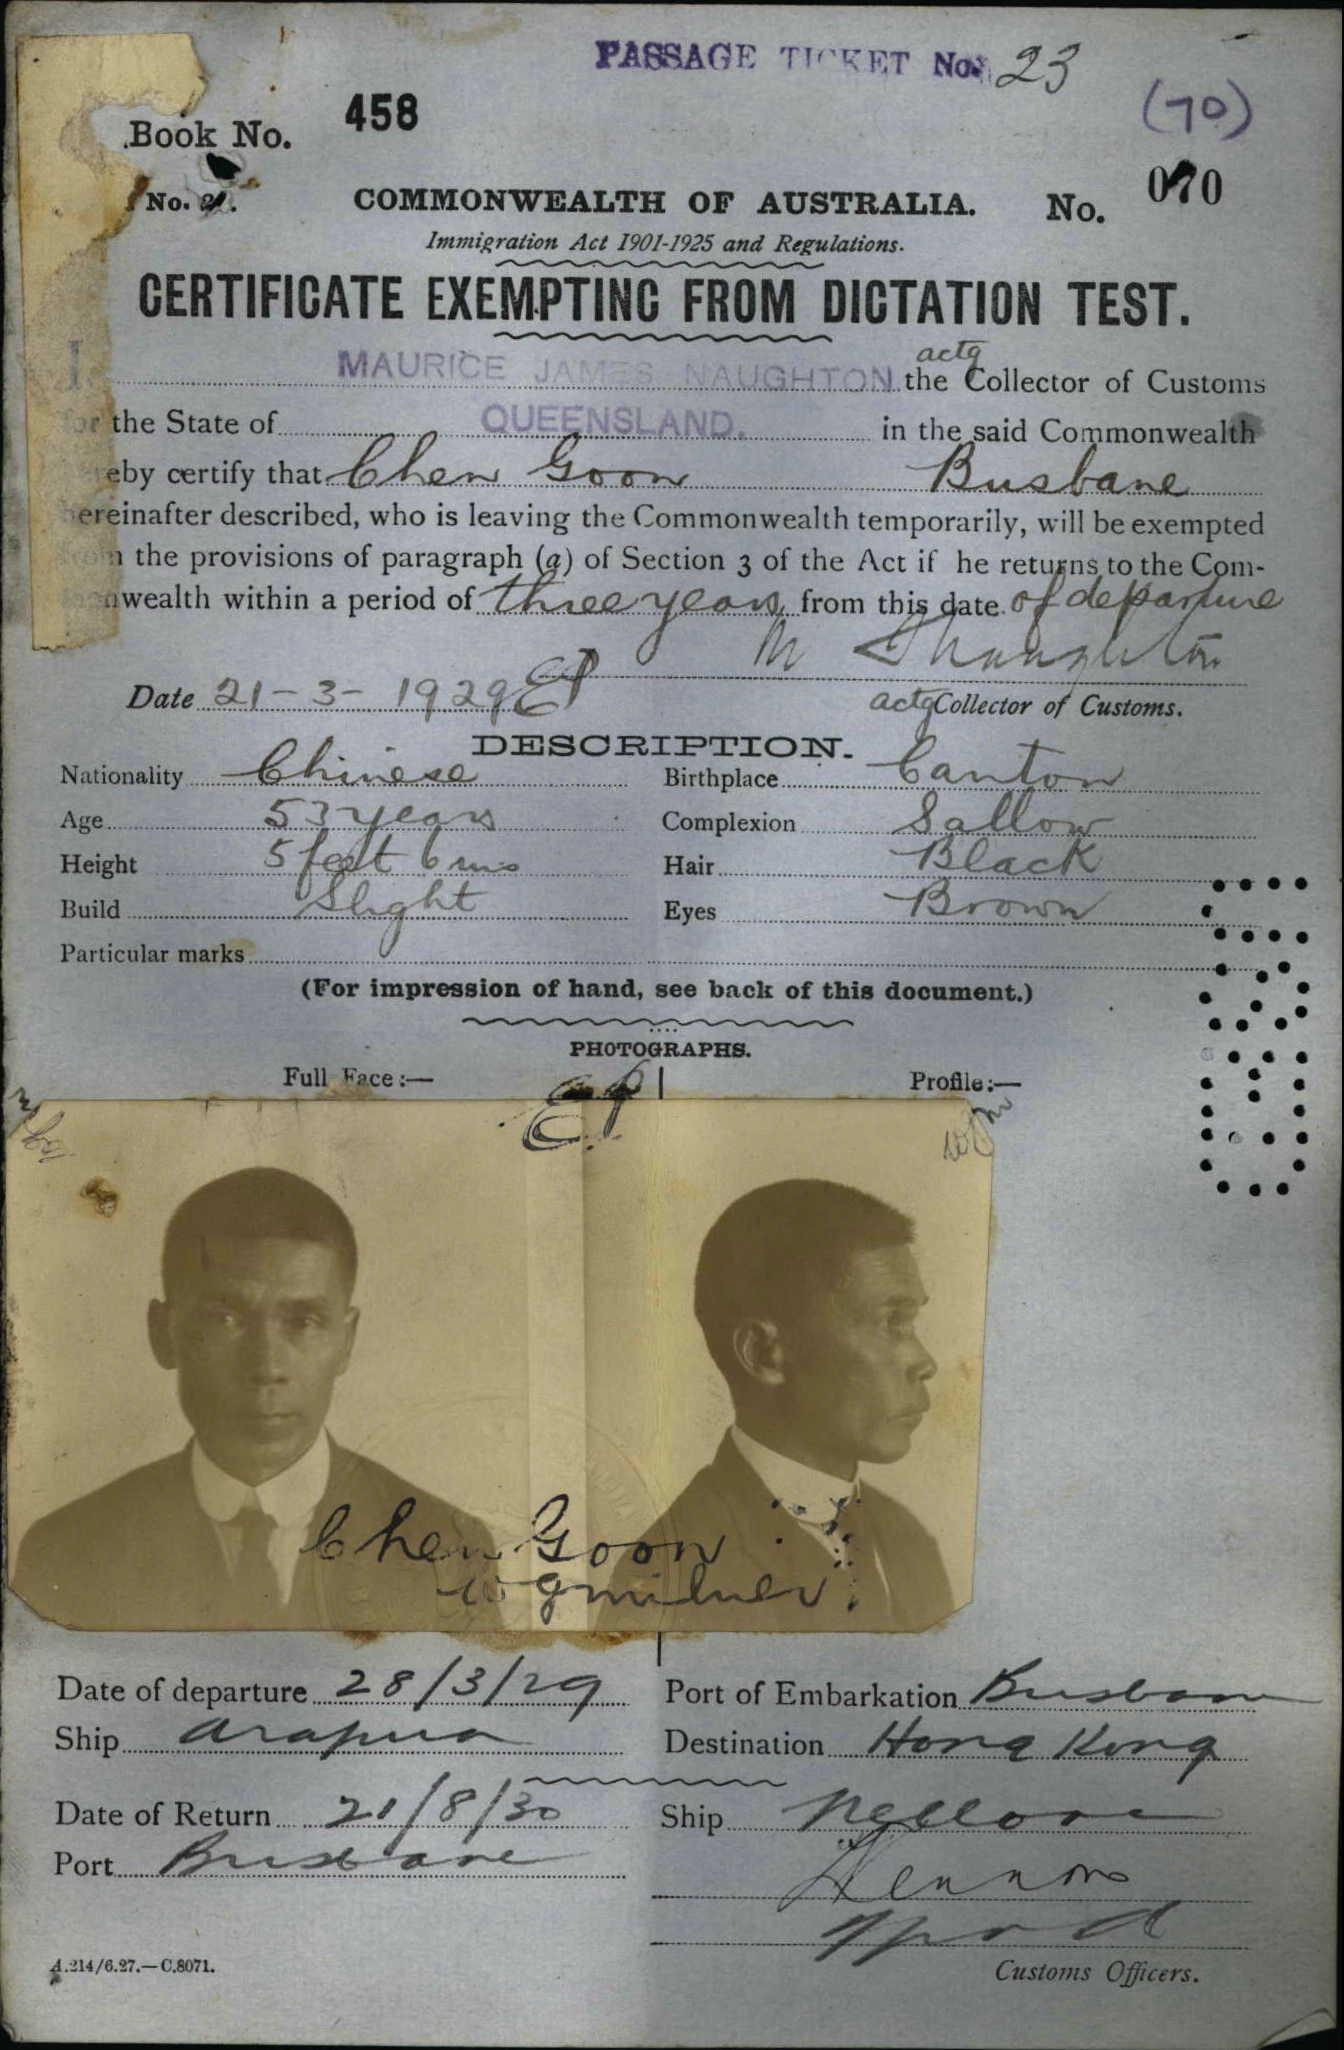 PASSAGE TICKET No. 23
(70)
Book No. 458
No. 21.
COMMONWEALTH OF AUSTRALIA.
No. 070
Immigration Act 1901-1925 and Regulations.
CERTIFICATE EXEMPTING FROM DICTATION TEST.
I, MAURICE JAMES NAUGHTON actg the Collector of Customs
for the State of QUEENSLAND. in the said Commonwealth
hereby certify that Chen Goon Brisbane
hereinafter described, who is leaving the Commonwealth temporarily, will be exempted
from the provisions of paragraph (a) of Section 3 of the Act if he returns to the Com-
monwealth within a period of three years from this date of departure
Date 21-3-1929
actg Collector of Customs.
DESCRIPTION.
Nationality Chinese Birthplace Canton
Age 53 years Complexion Sallow
Height 5 feet 6 ins Hair Black
Build Slight Eyes Brown
Particular marks
(For impression of hand, see back of this document.)
PHOTOGRAPHS.
Full Face:— Profile:—
Chen Goon
W G Milner
Date of departure 28/3/29 Port of Embarkation Brisbane
Ship Arafura Destination Hong Kong
Date of Return 21/8/30 Ship Nellore
Port Brisbane
Lennon
Customs Officers.
A.214/6.27.—C.8071.